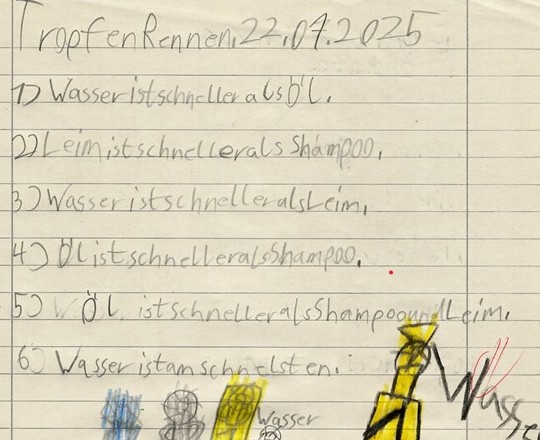 TropfenRennen.22.04.2025
1) Wasseristschnelleralsöl.
2) Leimistschnelleralsshampoo.
3) WasseristschnelleralsLeim.
4) ÖlistschnelleralsShampoo.
5) Öl istschnelleralsShampooundLeim.
6) Wasseristamschnelsten.
Wasser
Wasser